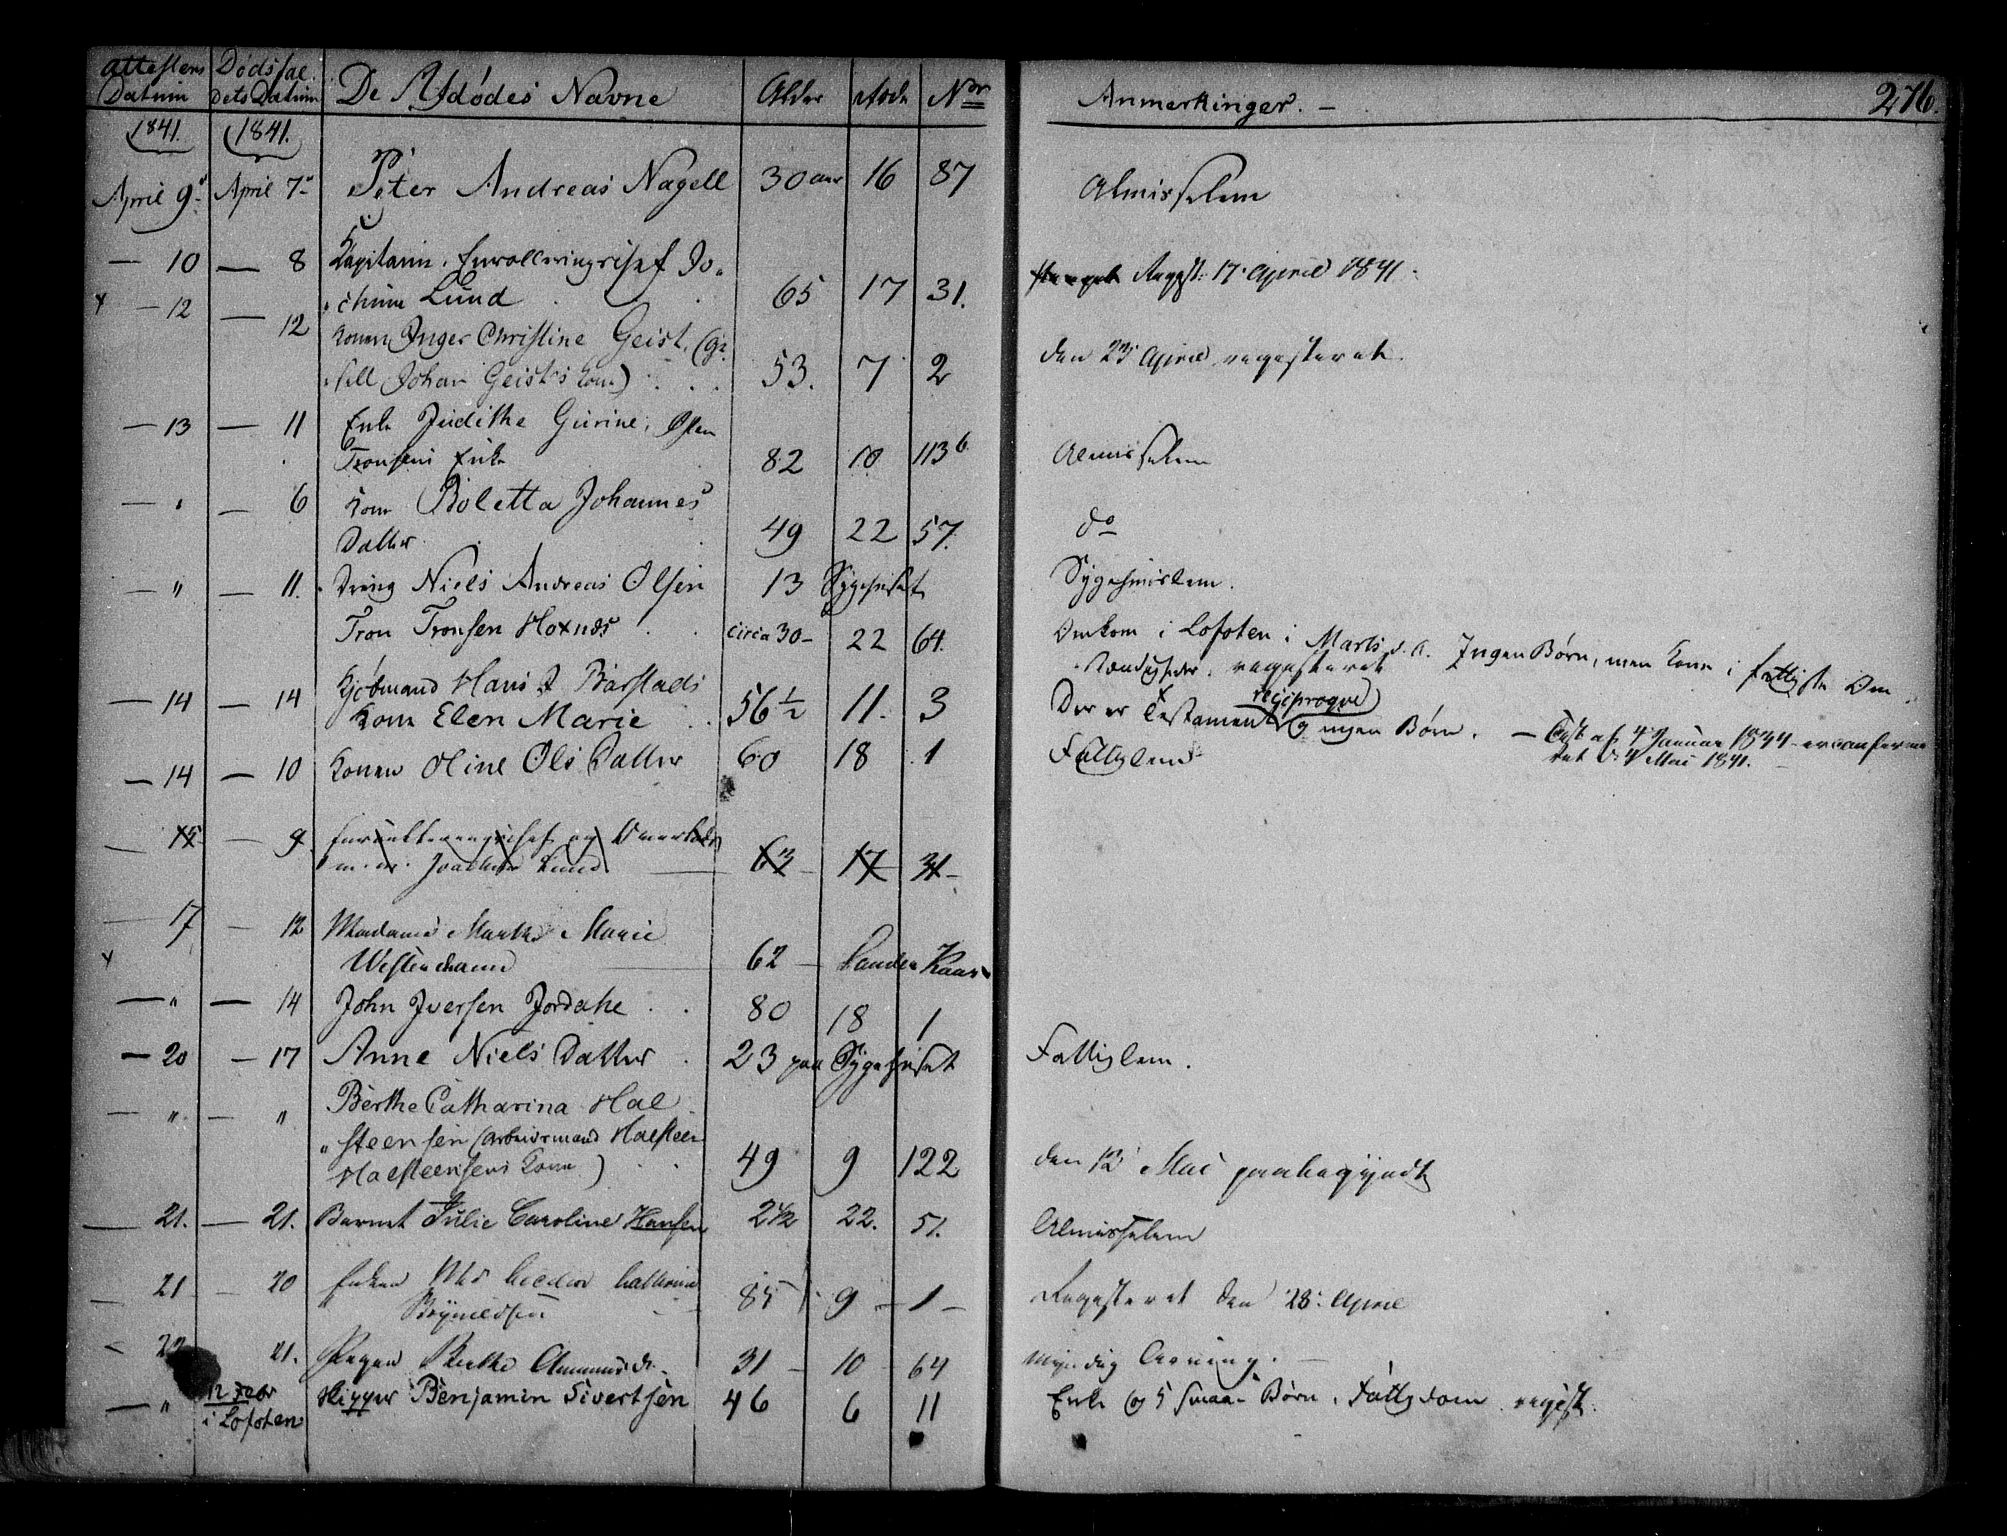 Attestens Datum | Dødsfaldets Datum | De Afdødes Navne | Alder | Rode | Nor | Anmerkninger. — 276.
1841. | 1841.
April 9. | April 7. | Peter Andreas Nagell | 30 aar | 16 | 87 | Almisselem
— 10 | — 8 | Kapitain, Enrolleringschef Jo-
chim Lund | 65 | 17 | 31. | Regist: 17 April 1841.
— 12 | — 12 | Konen Inger Christine Geist, (
Johan Geist's Kone) | 53. | 7 | 2 | den 23 April registeret.
— 13 | — 11 | Enke Judithe Gurine, Osten
Tronsens Enke | 82 | 10 | 113 b | Almisselem
— " | — 6 | Kone Boletta Johannes
Datter | 49 | 22 | 57. | do
— " | — 11. | Dreng Niels Andreas Olsen | 13 | Sygehuset | Sygehuslem.
Tron Tronsen Hoxnæs | circa 30 — | 22 | 64. | Omkom i Lofoten i Marts d. A. Ingen Børn, men Kone i fattigste Om-
stændigheder. registeret
— 14 | — 14 | Kjøbmand Hans J Barstads
Kone Elen Marie | 56 1/2 | 11. | 3 | Der er Testament (reciproque) og ingen Børn. — Test af 4 Januar 1834 er confirme-
ret d: 4 Mai 1841.
— 14 | — 10 | Konen Oline Ols Datter | 60 | 18 | 1 | Fattiglem
— 15 | — 9 | Enrolleringschef og
Joachim Lund | 63 | 17 | 31 —
— 17 | — 12 | Madame Marthe Marie
Westerdahl | 62 —
— " | — 14 | John Iversen Jordahl | 80 | 18 | 1
— 20 | — 17 | Anne Niels Datter | 23 | paa Sygehuset | Fattiglem.
— " | — " | Berthe Catharina Hal-
steensen (Arbeidsmand Halsteen
Halsteensens Kone) | 49 | 9 | 122 | den 12 Mai paabegyndt
— 21. | — 21. | Barnet Julie Caroline Hansen | 2 1/2 | 22. | 51. | Almisselem
21 | — 20 | Enken
Brynildsen | 85 | 9 | — 1 — | Registeret den 28. April
— 22 | 21. | Pigen Berthe | 31 — | 10 | 64 | Myndig Arving. —
— " | 12 Febr
i Lofoten | Skipper Benjamin Sivertsen | 46 | 6 | 11 | Enke og 5 smaa Børn. Fattigdom regist.